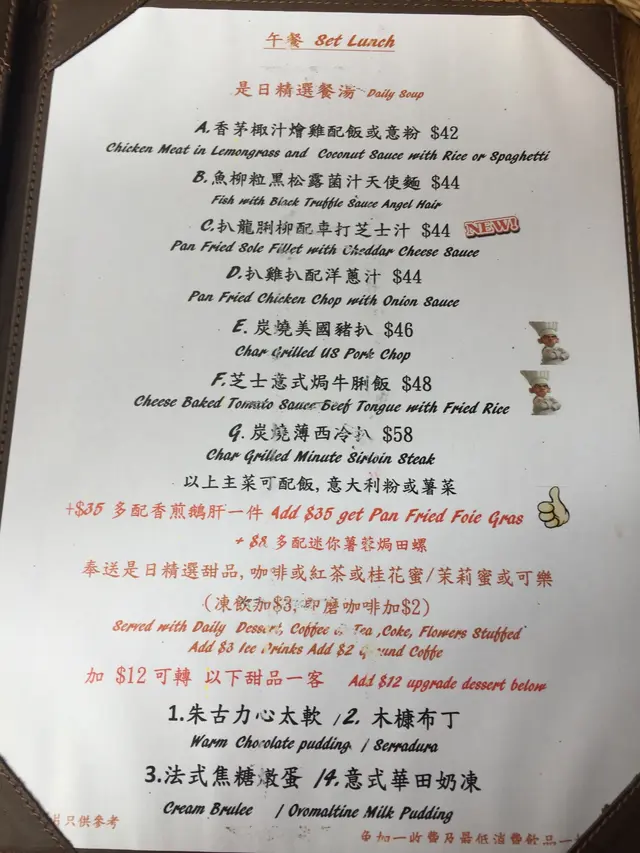 午餐 Set Lunch
是日精選餐湯 Daily Soup
A.香茅椰汁燴雞配飯或意粉 $42
Chicken Meat in Lemongrass and Coconut Sauce with Rice or Spaghetti
B.魚柳粒黑松露菌汁天使麵 $44
Fish with Black Truffle Sauce Angel Hair
C.扒龍脷柳配車打芝士汁 $44 NEW!
Pan Fried Sole Fillet with Cheddar Cheese Sauce
D.扒雞扒配洋蔥汁 $44
Pan Fried Chicken Chop with Onion Sauce
E.炭燒美國豬扒 $46
Char Grilled US Pork Chop
F.芝士意式焗牛脷飯 $48
Cheese Baked Tomato Sauce Beef Tongue with Fried Rice
G.炭燒薄西冷扒 $58
Char Grilled Minute Sirloin Steak
以上主菜可配飯,意大利粉或薯菜
+$35 多配香煎鵝肝一件 Add $35 get Pan Fried Foie Gras
+ $8 多配迷你薯蓉焗田螺
奉送是日精選甜品,咖啡或紅茶或桂花蜜/茉莉蜜或可樂
(凍飲加$3,即磨咖啡加$2)
Served with Daily Dessert, Coffee Tea ,Coke, Flowers Stuffed
Add $3 Ice Drinks Add $2 Coffe
加 $12可轉 以下甜品一客 Add $12 upgrade dessert below
1.朱古力心太軟 /2. 木糠布丁
Warm Chocolate pudding / Serradura
3.法式焦糖燉蛋 /4.意式華田奶凍
Cream Brulee / Ovomaltine Milk Pudding
片只供參考
另加一收費及最低消費飲品一